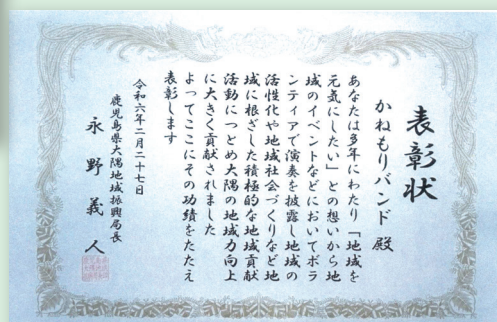 表彰状
かねもりバンド 殿
あなたは多年にわたり「地域を
元気にしたい」との想いから地
域のイベントなどにおいてボラ
ンティアで演奏を披露し地域の
活性化や地域社会づくりなど地
域に根ざした積極的な地域貢献
活動につとめ大隅の地域力向上
に大きく貢献されました
よってここにその功績をたたえ
表彰します
令和六年二月二十七日
鹿児島県大隅地域振興局長
永野義人